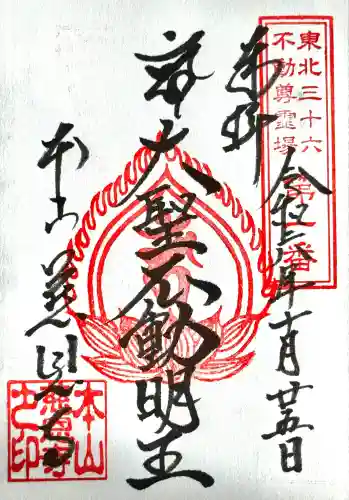 東北三十六
不動尊霊場
第一番
奉拝
令和六年十月廿五日
大聖不動明王
本山慈恩寺
本山
慈恩寺
之印